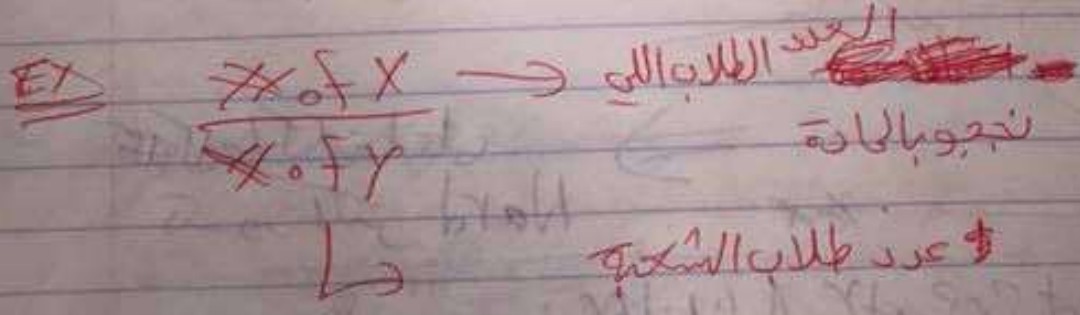 Ex
xx of X → العدد الطلاب اللي
نجحو بالمادة
xx of Y
عدد طلاب الشعبة